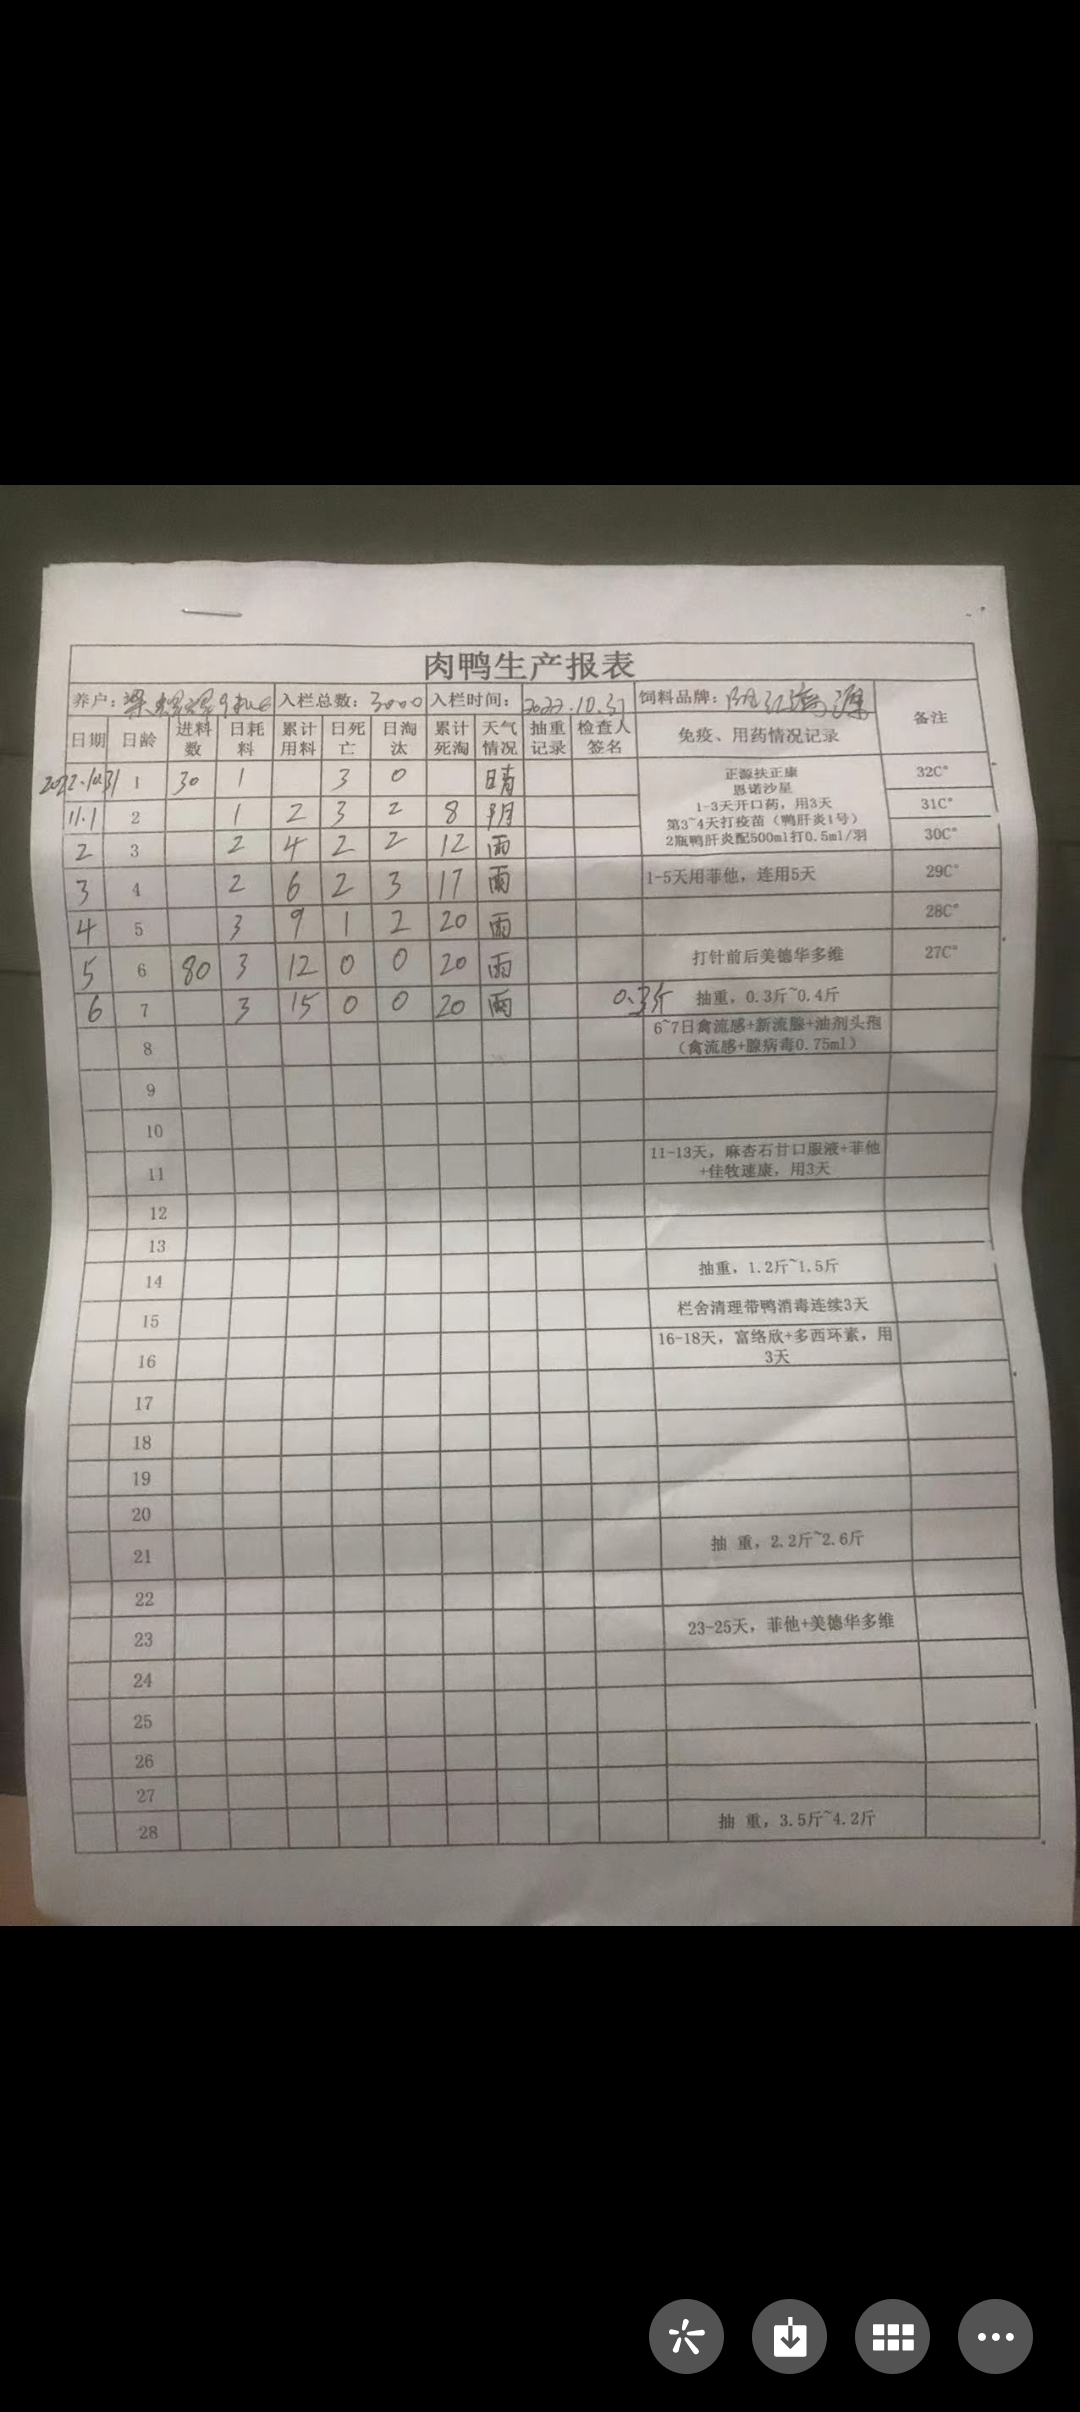 肉鸭生产报表
养户： 入栏总数：3000 入栏时间：2022.10.31 饲料品牌： 备注
日期 日龄 进料数 日耗料 累计用料 日死亡 日淘汰 累计死淘 天气情况 抽重记录 检查人签名 免疫、用药情况记录
2022.10.31 1 30 1 3 0 晴 正源扶正康 32C°
恩诺沙星
1-3天开口药，用3天
11.1 2 1 2 3 2 8 阴 第3~4天打疫苗（鸭肝炎1号） 31C°
2 3 2 4 2 2 12 雨 2瓶鸭肝炎配500ml打0.5ml/羽 30C°
3 4 2 6 2 3 17 雨 1-5天用菲他，连用5天 29C°
4 5 3 9 1 2 20 雨 28C°
5 6 80 3 12 0 0 20 雨 打针前后美德华多维 27C°
6 7 3 15 0 0 20 雨 0.3斤 抽重，0.3斤~0.4斤
8 6~7日禽流感+新流腺+油剂头孢
（禽流感+腺病毒0.75ml）
9
10
11 11-13天，麻杏石甘口服液+菲他
+佳牧速康，用3天
12
13
14 抽重，1.2斤~1.5斤
15 栏舍清理带鸭消毒连续3天
16 16-18天，富络欣+多西环素，用
3天
17
18
19
20
21 抽 重，2.2斤~2.6斤
22
23 23-25天，菲他+美德华多维
24
25
26
27
28 抽 重，3.5斤~4.2斤